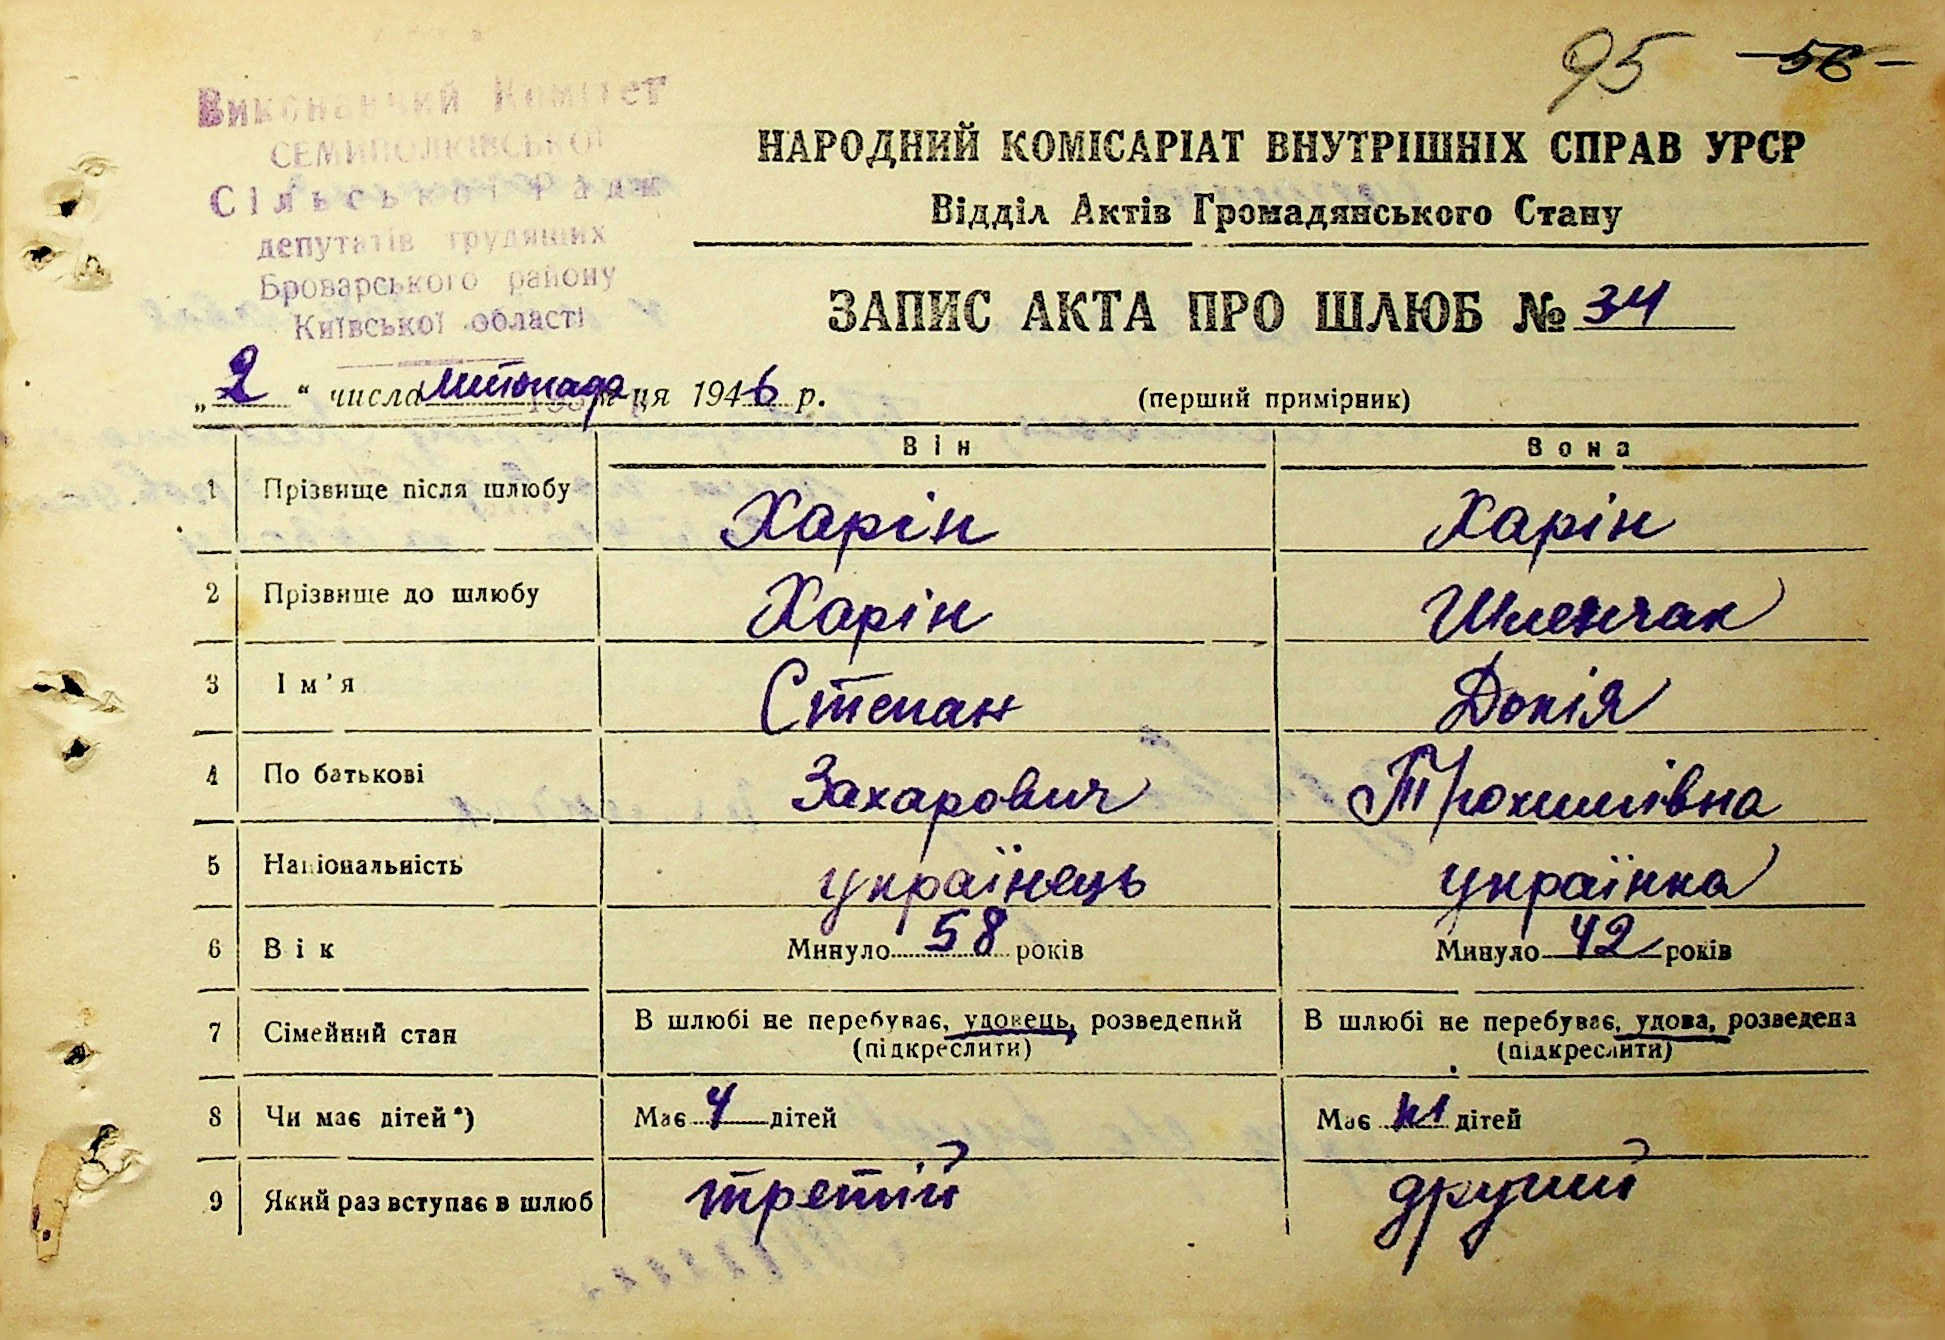 95 56
Виконавчий Комітет
СЕМИПОЛКІВСЬКОЇ
Сільської Ради
депутатів трудящих
Броварського району
Київської області
НАРОДНИЙ КОМІСАРІАТ ВНУТРІШНІХ СПРАВ УРСР
Відділ Актів Громадянського Стану
ЗАПИС АКТА ПРО ШЛЮБ № 34
„2“ числа листопада ця 1946 р. (перший примірник)
Він Вона
1 Прізвище після шлюбу Харін Харін
2 Прізвище до шлюбу Харін Шленчак
3 Ім'я Степан Докія
4 По батькові Захарович Трохимівна
5 Національність українець українка
6 Вік Минуло 58 років Минуло 42 років
7 Сімейний стан В шлюбі не перебуває, удовець, розведений В шлюбі не перебуває, удова, розведена
(підкреслити) (підкреслити)
8 Чи має дітей*) Має 4 дітей Має дітей
9 Який раз вступає в шлюб третій другий